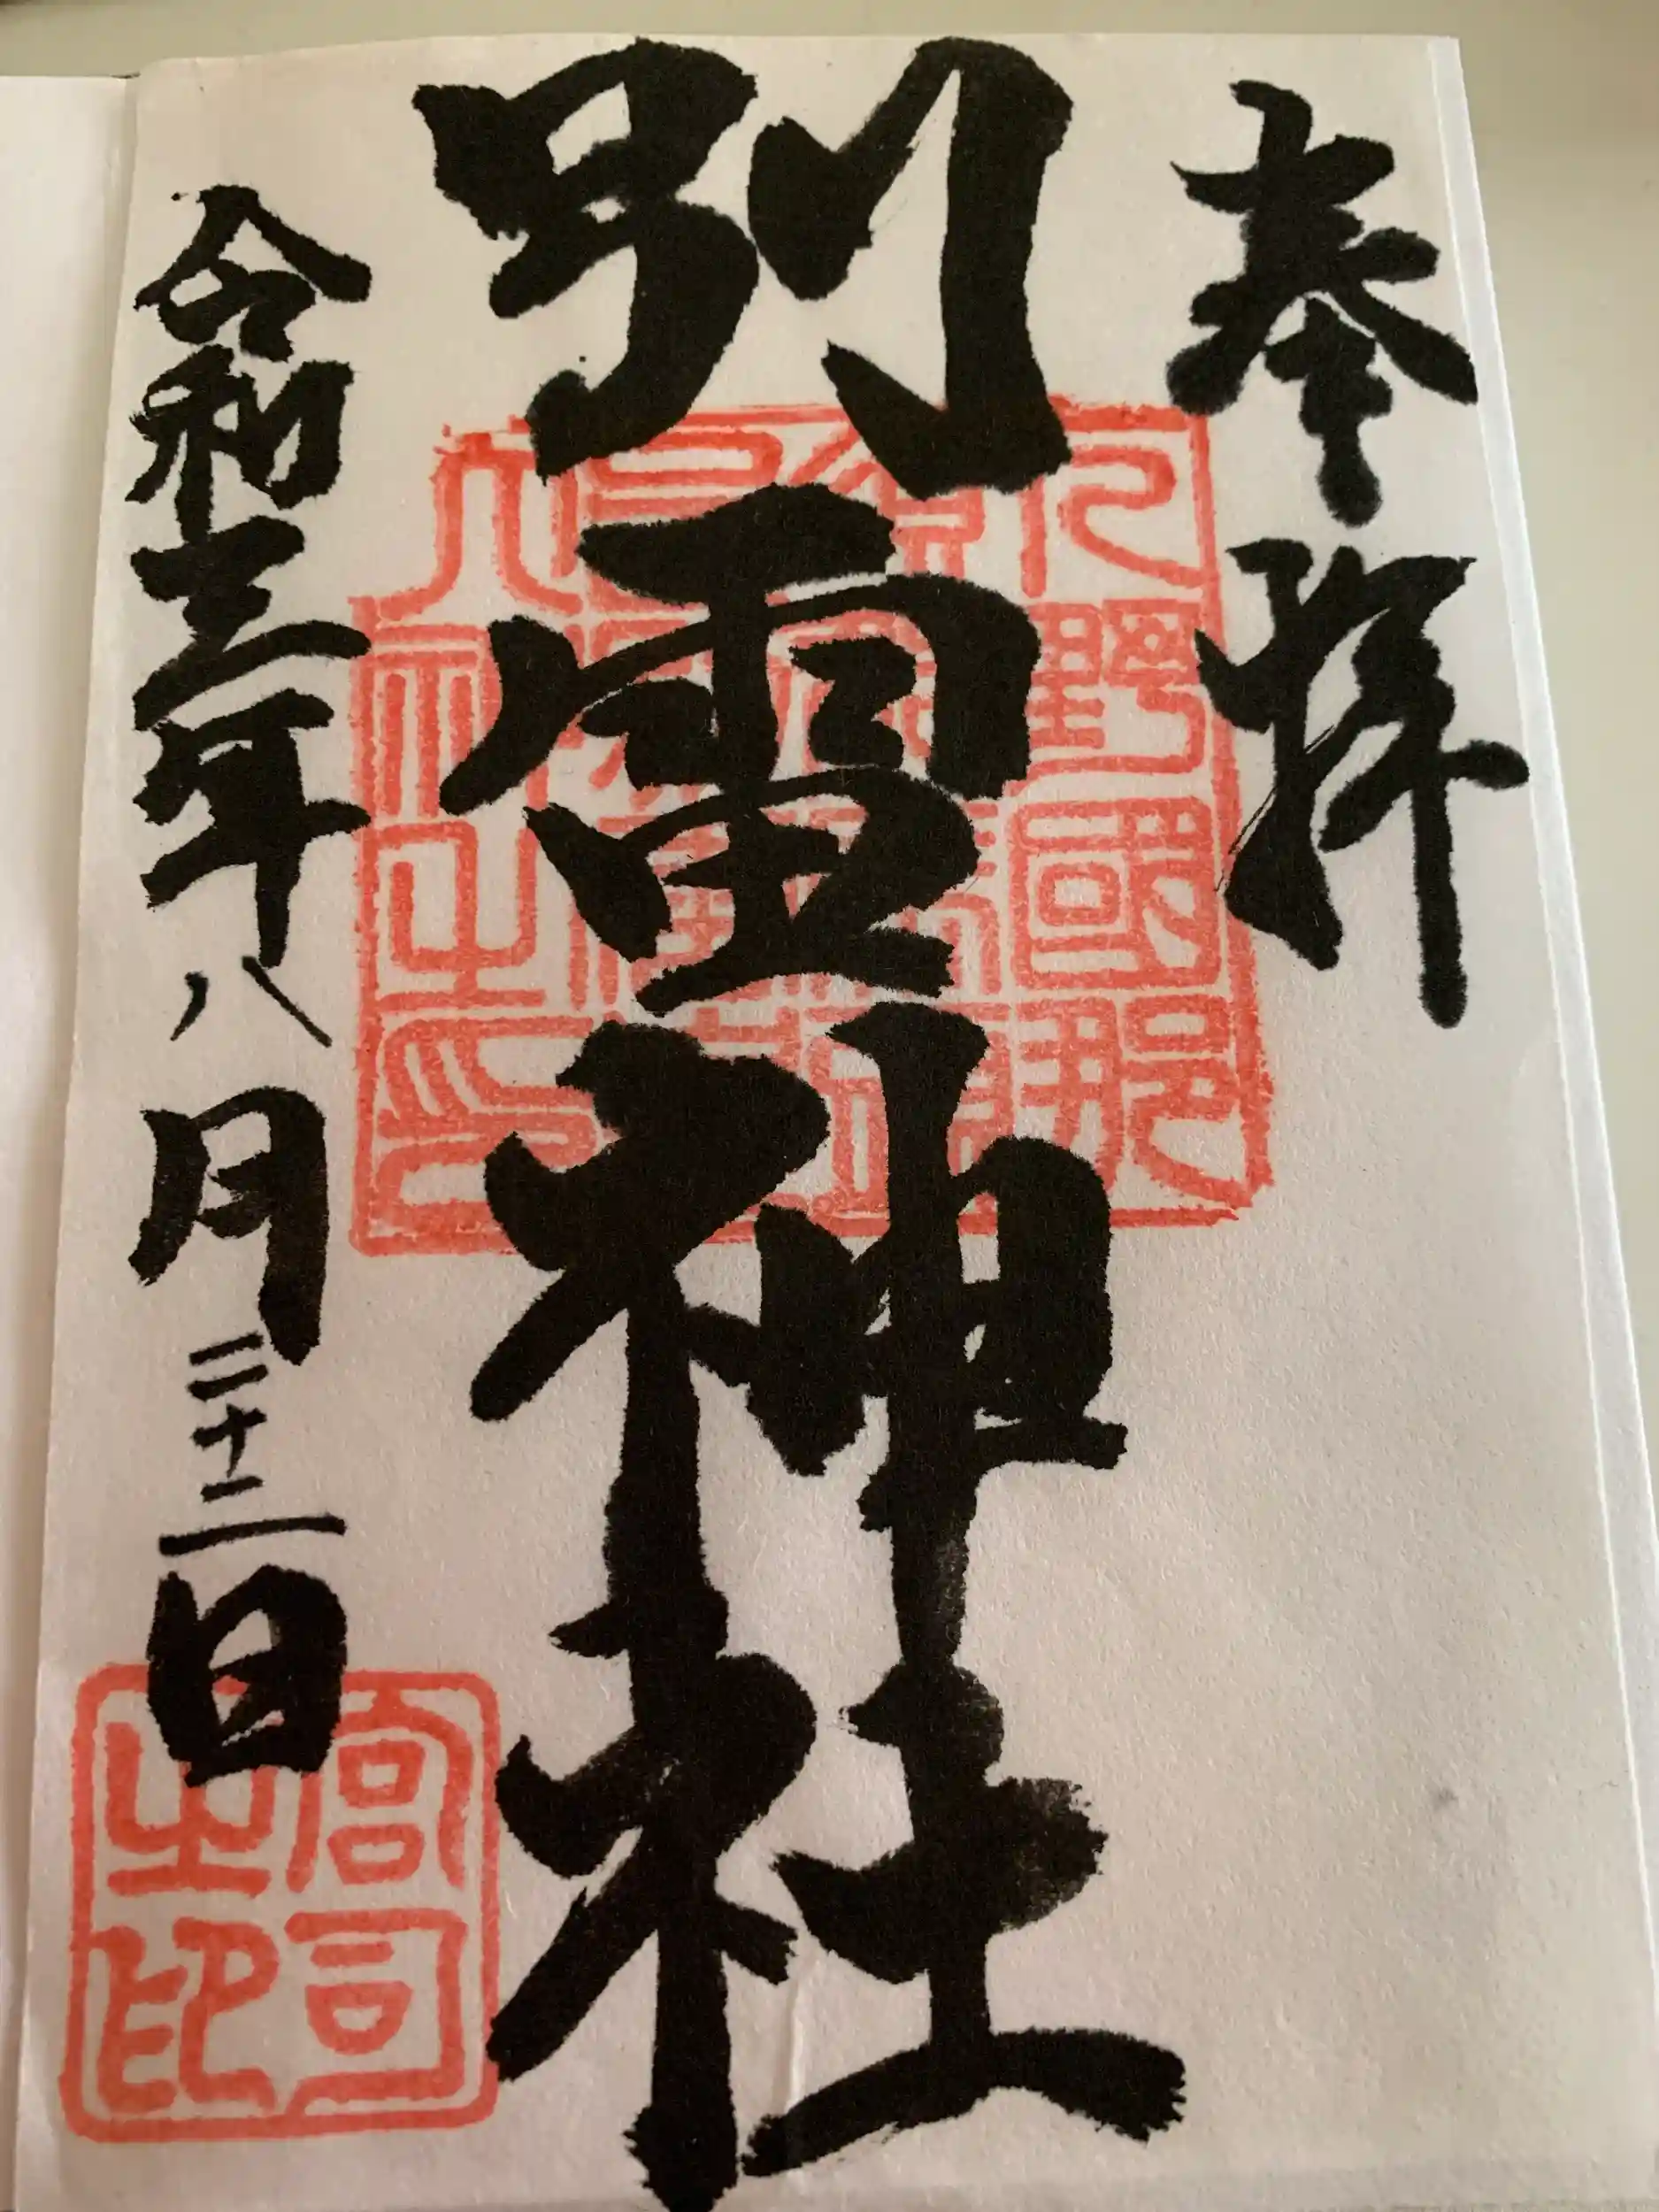 奉拝
別雷神社
令和三年八月二十二日
野國那
宮司
之印